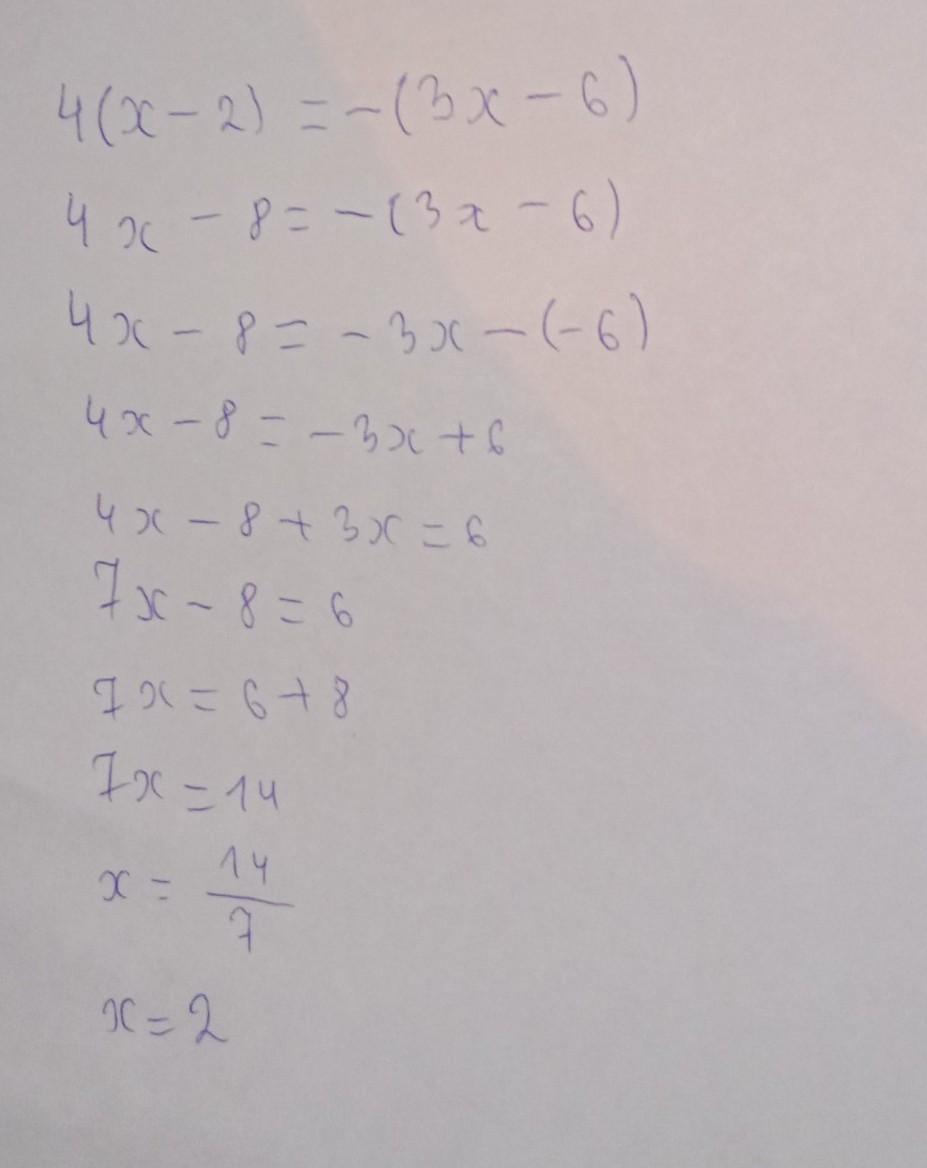 4(x-2) = -(3x-6)
4x - 8 = -(3x - 6)
4x - 8 = -3x - (-6)
4x - 8 = -3x + 6
4x - 8 + 3x = 6
7x - 8 = 6
7x = 6 + 8
7x = 14
x = 14/7
x = 2